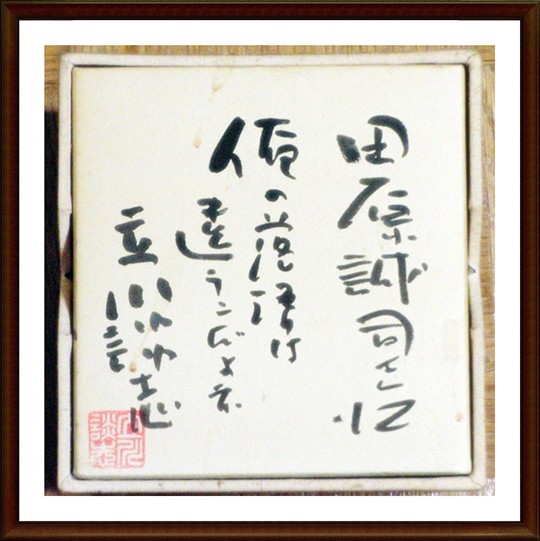 田原誠司
俺の落語は
違うんだよネ
立川談志
立川談志